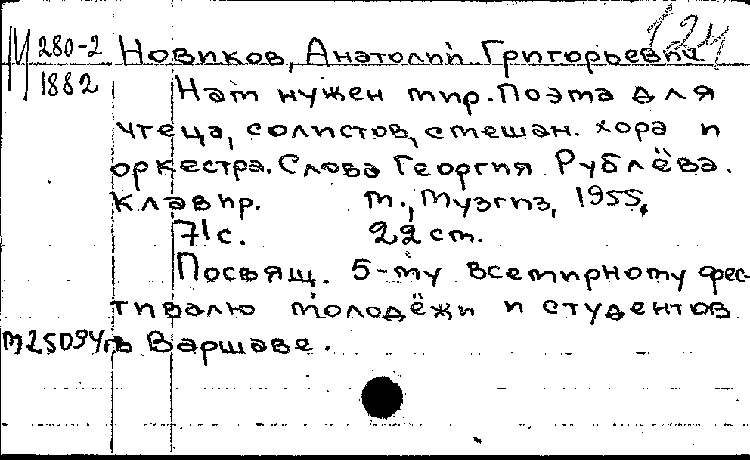 124
М 280-2 Новиков, Анатолий Григорьевич
1882 Нам нужен мир. Поэма для
чтеца, солистов, смешан. хора и
оркестра. Слова Георгия Рублёва.
Клавир. М., Музгиз, 1955,
71 с. 22 см.
Посвящ. 5-му Всемирному фес-
тивалю молодёжи и студентов
в Варшаве.